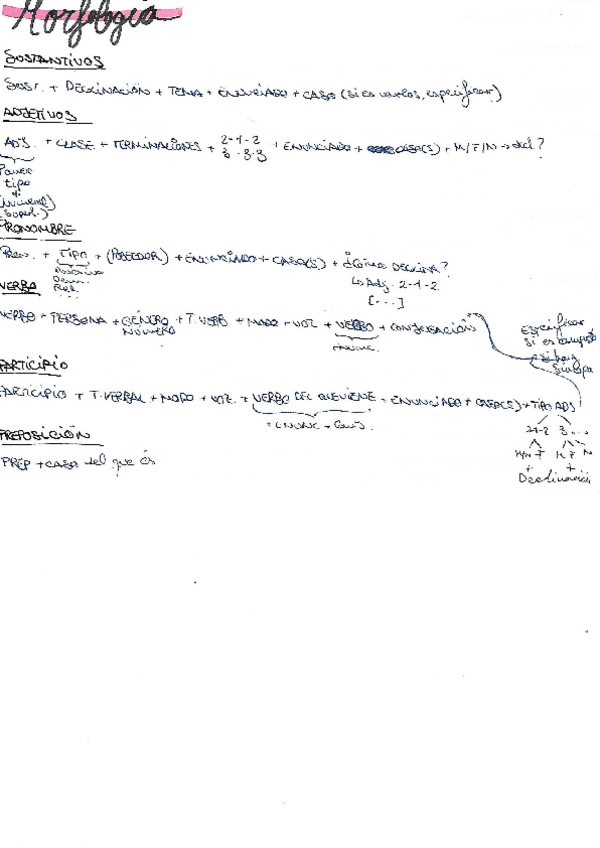 Morfología
SUSTANTIVOS
Sust. + DECLINACIÓN + TEMA + ENUNCIADO + CASO (si es varios, especificar)
ADJETIVOS
ADJ. + CLASE + TERMINACIONES + 2-1-2 / 3-3-3 + ENUNCIADO + CASO(S) + M/F/N → decl?
Poner
tipo
(numeral
Superl.)
PRONOMBRE
Pron. + TIPO + (POSEEDOR) + ENUNCIADO + CASO(S) + ¿Cómo DECLINA?
Posesivo
Dem.
Rel.
...
↳ Adj. 2-1-2.
[...]
VERBO
VERBO + PERSONA + GÉNERO + T. VERB + MODO + VOZ + VERBO + CONJUGACIÓN
NÚMERO
enunc.
Especificar
si es compuesto
si hay
Síncopa
PARTICIPIO
PARTICIPIO + T. VERBAL + MODO + VOZ + VERBO DEL QUE VIENE + ENUNCIADO + CASO(S) + TIPO ADJ
+ ENUNC + Conj.
2-1-2 3...
M/N F M F N
+ +
Declinación
PREPOSICIÓN
PREP + CASO del que es